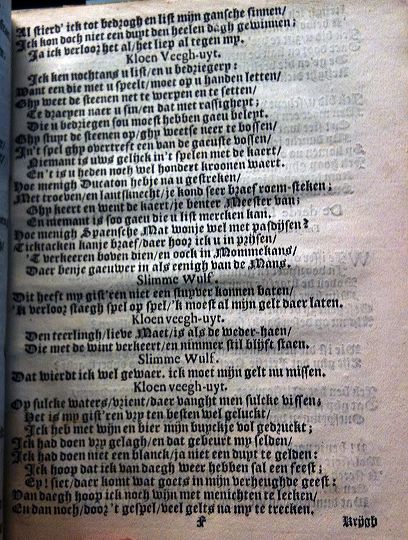 Al stierd' ick tot bedrogh en list mijn gansche sinnen/
Ick kon doch niet een duyt den heelen dagh gewinnen;
Ja ick verloor het al/het liep al tegen my.
Kloen Veegh-uyt.
Ick ken nochtans u list/en u bedriegery:
Want een die met u speelt/moet op u handen letten/
Ghy weet de steenen net te werpen en te setten/
Te draeyen naer u sin/en dat met rassighept;
Die u bedriegen sou moest hebben gaeu beleyt.
Ghy stuyt de steenen op/ghy weetse neer te bossen/
In't spel ghy overtreft een van de gaeuste vossen/
Niemant is uws gelijck in't spelen met de kaert/
En't is u heden noch wel hondert kroonen waert.
Hoe menigh Ducaton hebje na u gestreken/
Met troeven/en lantsknecht/je kond seer braef roem-steken;
Ghy keert en went de kaert/je benter Meester van;
En niemant is soo gaeu die u list mercken kan.
Hoe menigh Spaensche Mat wonje wel met pasdijsen?
Ticktacken kanje braef/daer hoor ick u in prijsen/
'T verkeeren boven dien/en oock in Mommekans/
Daer benje gaeuwer in als eenigh van de Mans.
Slimme Wulf.
Dit heeft my gist'ren niet een stuyver konnen baten/
'K verloor staegh spel op spel/'k moest al mijn gelt daer laten.
Kloen veegh-uyt.
Den teerlingh/lieve Maet/is als de weder-haen/
Die met de wint verkeert/en nimmer stil blijft staen.
Slimme Wulf.
Dat wierdt ick wel gewaer. ick moet mijn gelt nu missen.
Kloen veegh-uyt.
Op sulcke waters/vrient/daer vanght men sulcke vissen;
Het is my gist'ren vry ten besten wel geluckt/
Ick heb met wijn en bier mijn buyckje vol gedruckt;
Ick had doen vry gelagh/en dat gebeurt my selden/
Ick had doen niet een blanck/ja niet een duyt te gelden:
Ick hoop dat ick van daegh weer hebben sal een feest;
Ey! siet/daer komt wat goets in mijn verheughde geest:
Van daegh hoop ick noch wijn met menichten te lecken/
En dan noch/door't gespel/veel gelts na my te trecken.
F Krijgh